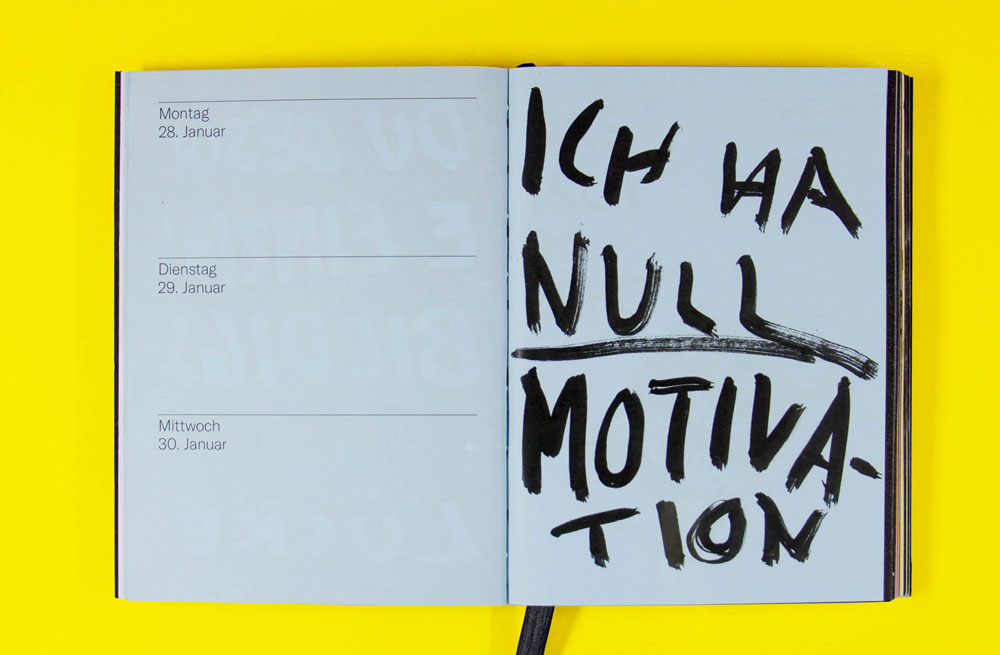 Montag
28. Januar
Dienstag
29. Januar
Mittwoch
30. Januar
ICH HA
NULL
MOTIVA-
TION